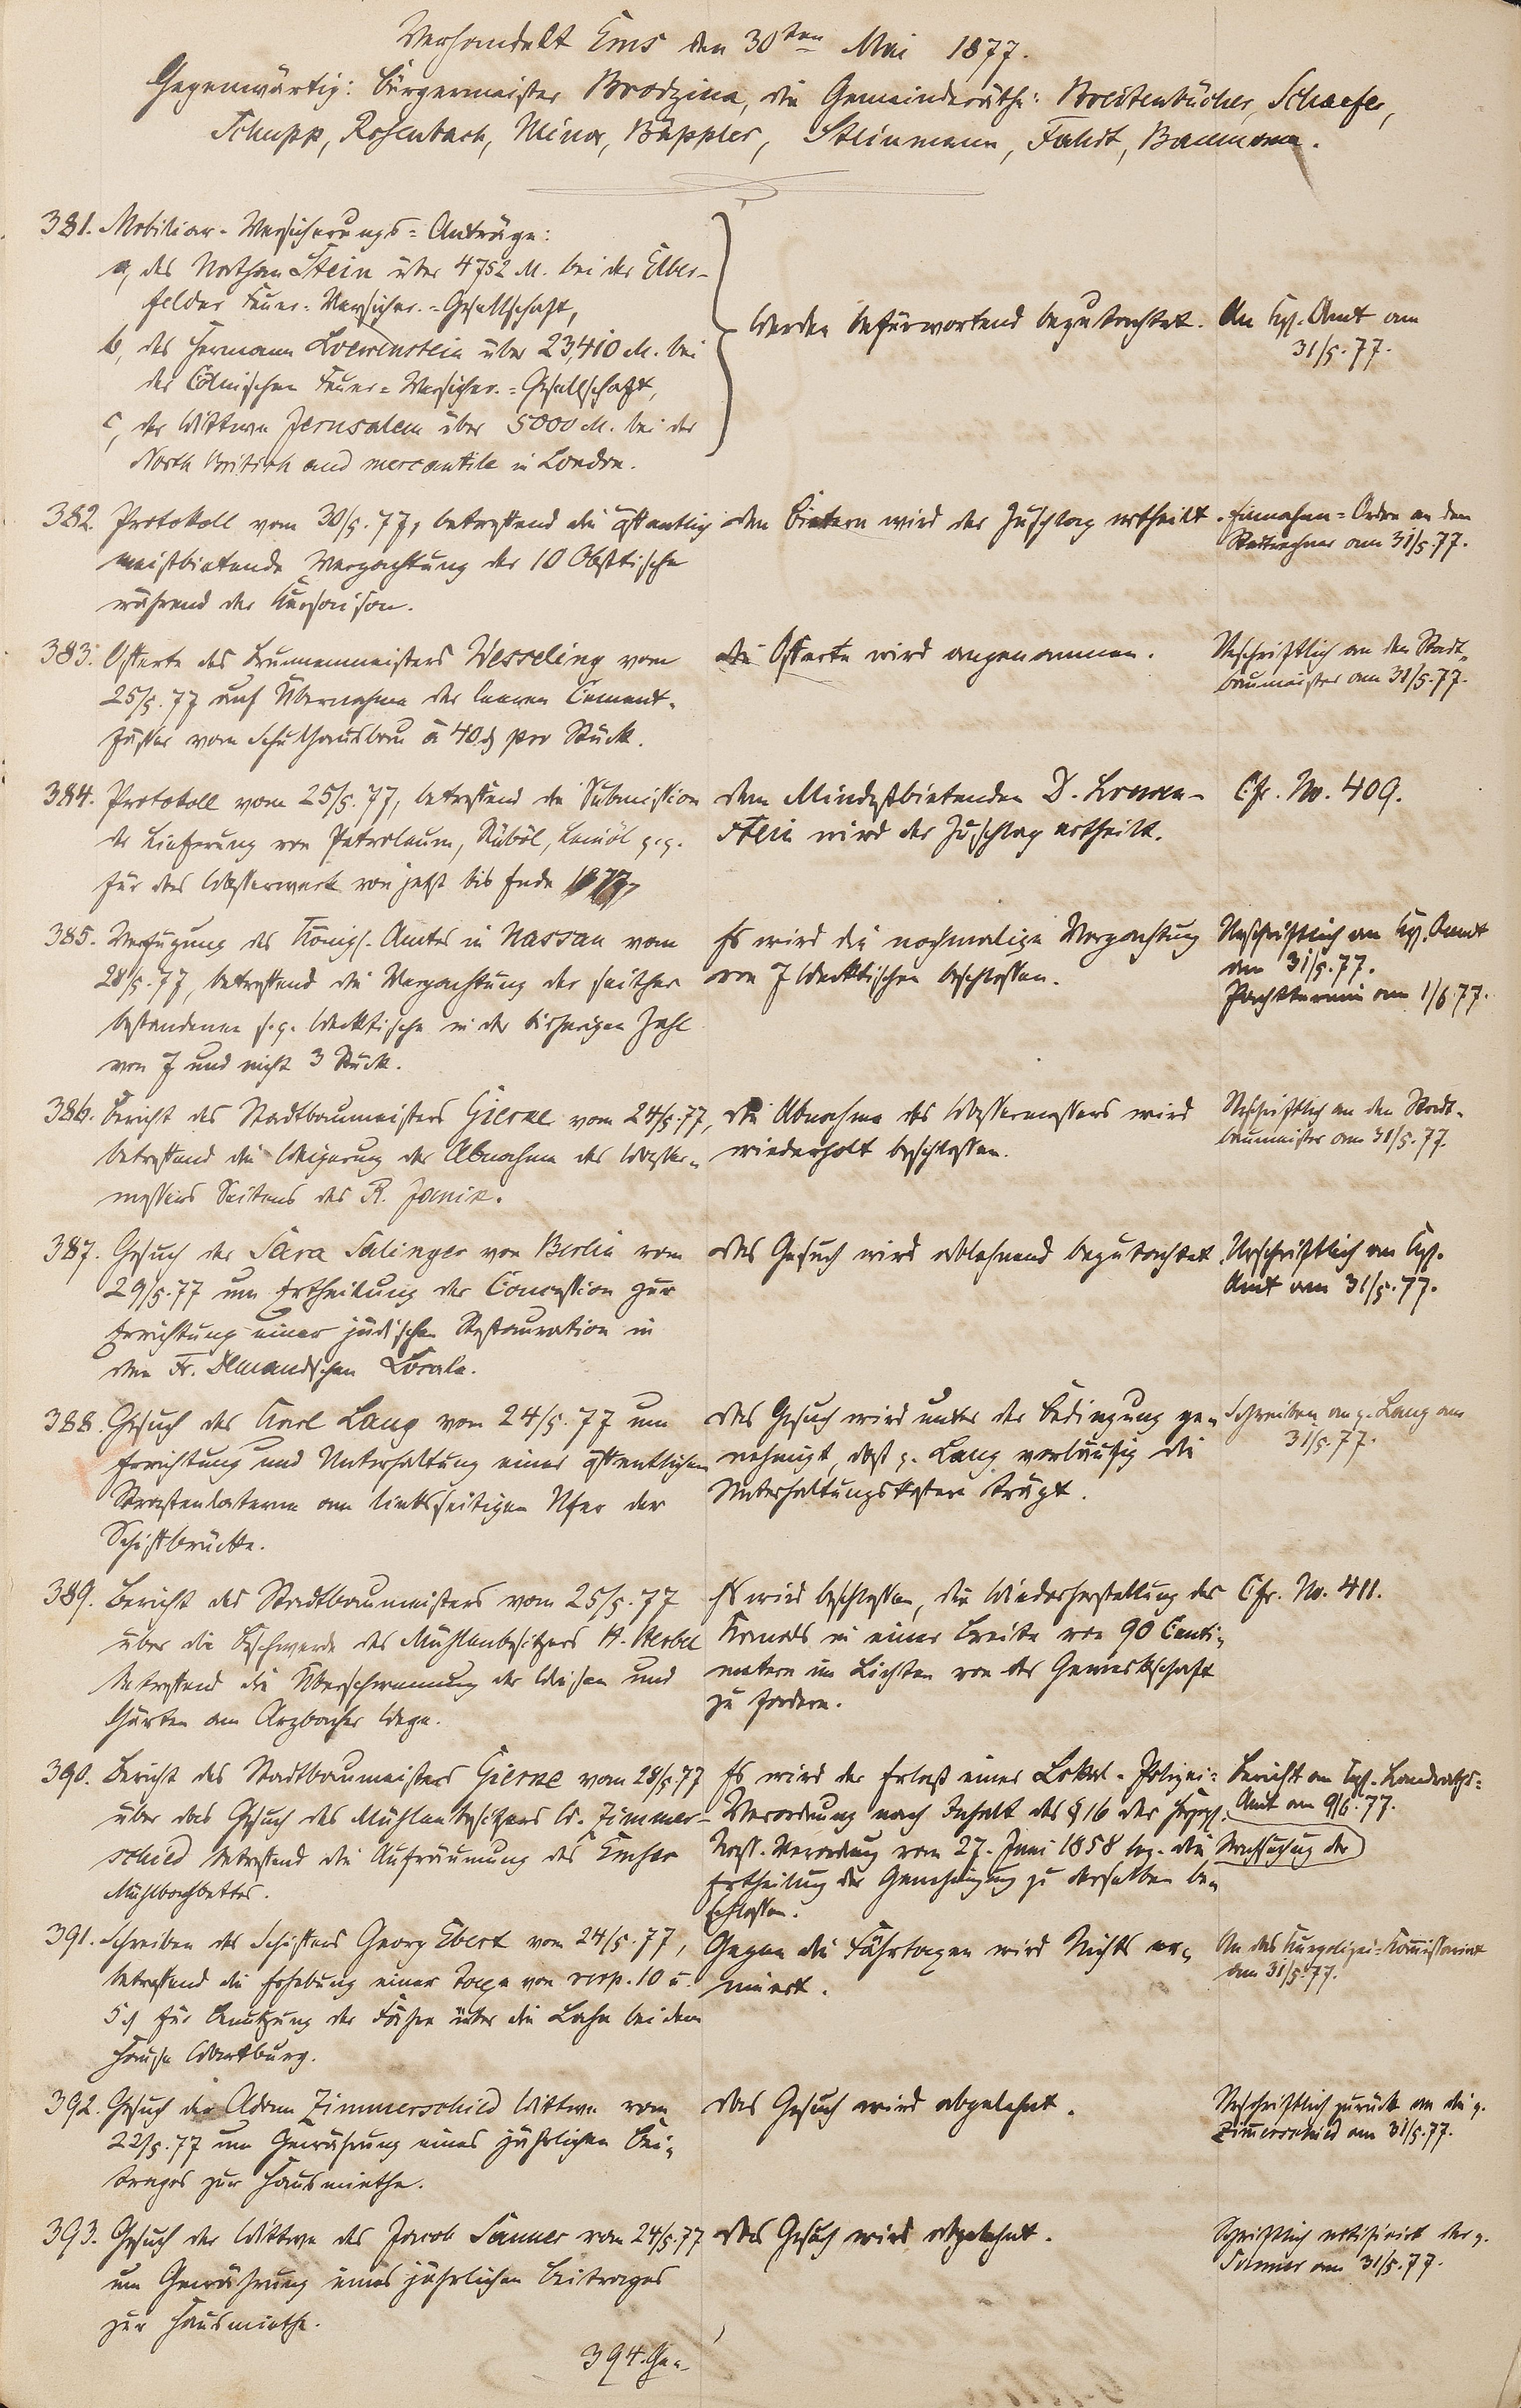 Verhandelt Ems den 30ten Mai 1877.
Gegenwärtig: Bürgermeister Brodzina, die Gemeinderäthe: Breitenbücher, Schaefer,
Schupp, Rosenbach, Minor, Bäppler, Steinmann, Fahdt, Baumann.
381. Mobiliar-Versicherungs-Anträge:
a, des Nathan Stein über 4752 M. bei der Elber-
felder Feuer-Versicher.-Gesellschaft,
b, des Hermann Loewenstein über 23,410 M. bei
der Cölnischen Feuer-Versicher.-Gesellschaft,
c, der Wittwe Jerusalem über 5000 M. bei der
North British and mercantile in London.
Werden befürwortend begutachtet.
An Kgl. Amt am
31/5. 77.
382. Protokoll vom 30/5. 77, betreffend die öffentlich
meistbietende Verpachtung der 10 Obsttische
während der Kursaison.
den Bietern wird der Zuschlag ertheilt.
Einnahme-Ordre an den
Stadtrechner am 31/5 77.
383. Offerte des Brunnenmeisters Wesseling vom
25/5. 77 auf Übernahme der leeren Cement-
fässer vom Schulhausbau à 40 ₰ pro Stück.
die Offerte wird angenommen.
Urschriftlich an den Stadt-
baumeister am 31/5. 77.
384. Protokoll vom 25/5. 77, betreffend die Submission
der Lieferung von Petroleum, Rüböl, Leinöl p.p.
für das Wasserwerk von jetzt bis Ende 1877,
dem Mindestbietenden D. Loewen-
stein wird der Zuschlag ertheilt.
Cfr. No. 409.
385. Verfügung des Königl. Amtes in Nassau vom
28/5. 77, betreffend die Verpachtung der seither
bestandenen s.g. Wecktische in der bisherigen Zahl
von 7 und nicht 3 Stück.
Es wird die nochmalige Verpachtung
von 7 Wecktischen beschlossen.
Urschriftlich an Kgl. Amt
am 31/5. 77.
Pachttermin am 1/6. 77.
386. Bericht des Stadtbaumeisters Gierne vom 24/5. 77,
betreffend die Weigerung der Abnahme des Wasser-
messers Seitens des R. Janie.
die Abnahme des Wassermessers wird
wiederholt beschlossen.
Urschriftlich an den Stadt-
baumeister am 31/5. 77.
387. Gesuch der Sara Salinger von Berlin vom
29/5. 77 um Ertheilung der Concession zur
Errichtung einer jüdischen Restauration in
dem Fr. Lokale.
das Gesuch wird ablehnend begutachtet.
Urschriftlich an Kgl.
Amt am 31/5. 77.
388. Gesuch des Karl Lang vom 24/5. 77 um
Errichtung und Unterhaltung einer öffentlichen
Strassenlaterne am linksseitigen Ufer der
Schiffbrücke.
das Gesuch wird unter der Bedingung ge-
nehmigt, dass p. Lang vorläufig die
Unterhaltungskosten trägt.
Schreiben an p. Lang am
31/5. 77.
389. Bericht des Stadtbaumeisters vom 25/5. 77
über die Beschwerde des Mühlenbesitzers H. Herbel
betreffend die Überschwemmung der Wiesen und
Gärten am Arzbacher Wege.
Es wird beschlossen, die Wiederherstellung des
Kanals in einer Breite von 90 Centi-
metern im Lichten von der Gewerkschaft
zu fordern.
Cfr. No. 411.
390. Bericht des Stadtbaumeisters Gierne vom 28/5. 77
über das Gesuch des Mühlenbesitzers W. Zimmer-
schied betreffend die Aufräumung des Emser
Mühlbachbettes.
Es wird der Erlaß einer Lokal-Polizei-
Verordnung nach Inhalt des § 16 der Herzogl.
Nass. Verordnung vom 27. Juni 1858 bez. die Nachsuchung der
Ertheilung der Genehmigung zu derselben be-
schlossen.
Bericht an Kgl. Landraths-
Amt am 9/6. 77.
391. Schreiben des Schiffers Georg Ebert vom 24/5. 77,
betreffend die Erhebung einer Taxe von resp. 10 u.
5 ₰ für Benutzung der Fähre über die Lahn bei dem
Hause Wartburg.
Gegen die Fährtaxen wird Nichts er-
innert.
An das Kurpolizei-Kommissariat
am 31/5. 77.
392. Gesuch der Adam Zimmerschied Wittwe vom
22/5. 77 um Gewährung eines jährlichen Bei-
trages zur Hausmiethe.
das Gesuch wird abgelehnt.
Urschriftlich zurück an die p.
Zimmerschied am 31/5. 77.
393. Gesuch der Wittwe des Jacob Sauner vom 24/5. 77
um Gewährung eines jährlichen Beitrages
zur Hausmiethe.
das Gesuch wird abgelehnt.
Schriftlich notificirt der p.
Sauner am 31/5. 77.
394. Ge-